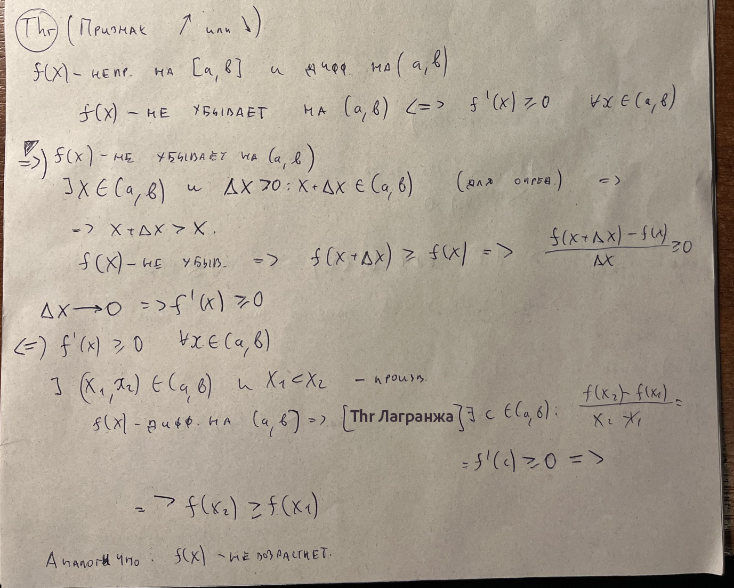 Thr (Признак ↑ или ↓)
f(x) - непр. на [a,b] и дифф. на (a,b)
f(x) - не убывает на (a,b) <=> f'(x) ≥ 0 ∀x∈(a,b)
=>) f(x) - не убывает на (a,b)
∃ x∈(a,b) и Δx>0: x+Δx ∈(a,b) (для опред.) =>
=> x+Δx > x.
f(x) - не убыв. => f(x+Δx) ≥ f(x) => (f(x+Δx) - f(x))/Δx ≥ 0
Δx → 0 => f'(x) ≥ 0
<=) f'(x) ≥ 0 ∀x∈(a,b)
∃ (x₁,x₂) ∈(a,b) и x₁<x₂ - произв.
f(x) - дифф. на (a,b] => [Thr Лагранжа] ∃ c ∈(a,b): (f(x₂) - f(x₁))/(x₂ - x₁) =
= f'(c) ≥ 0 =>
=> f(x₂) ≥ f(x₁)
Аналогично: f(x) - не возрастает.